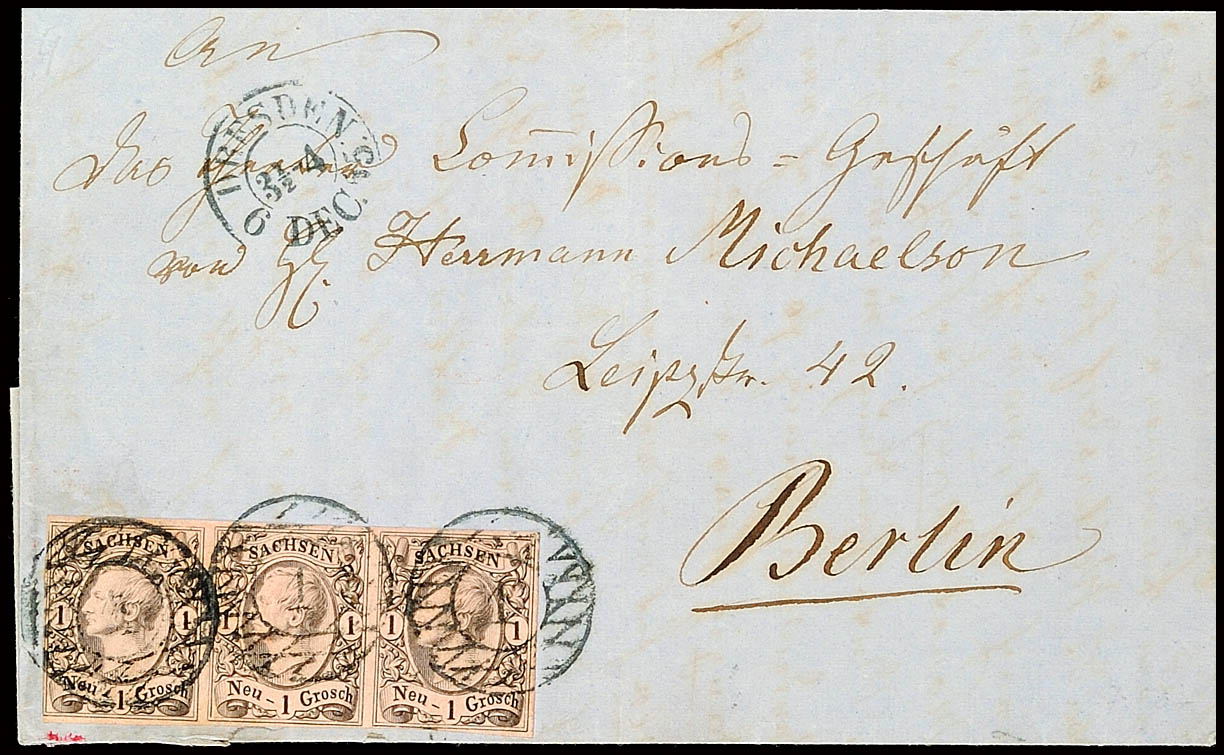 An
das Commissions = Geschäft
von H. Herrmann Michaelson
Leipzstr. 42.
Berlin
DRESDEN
6 DEC. 55
SACHSEN
1 1
Neu - 1 Grosch
SACHSEN
1 1
Neu - 1 Grosch
SACHSEN
1 1
Neu - 1 Grosch